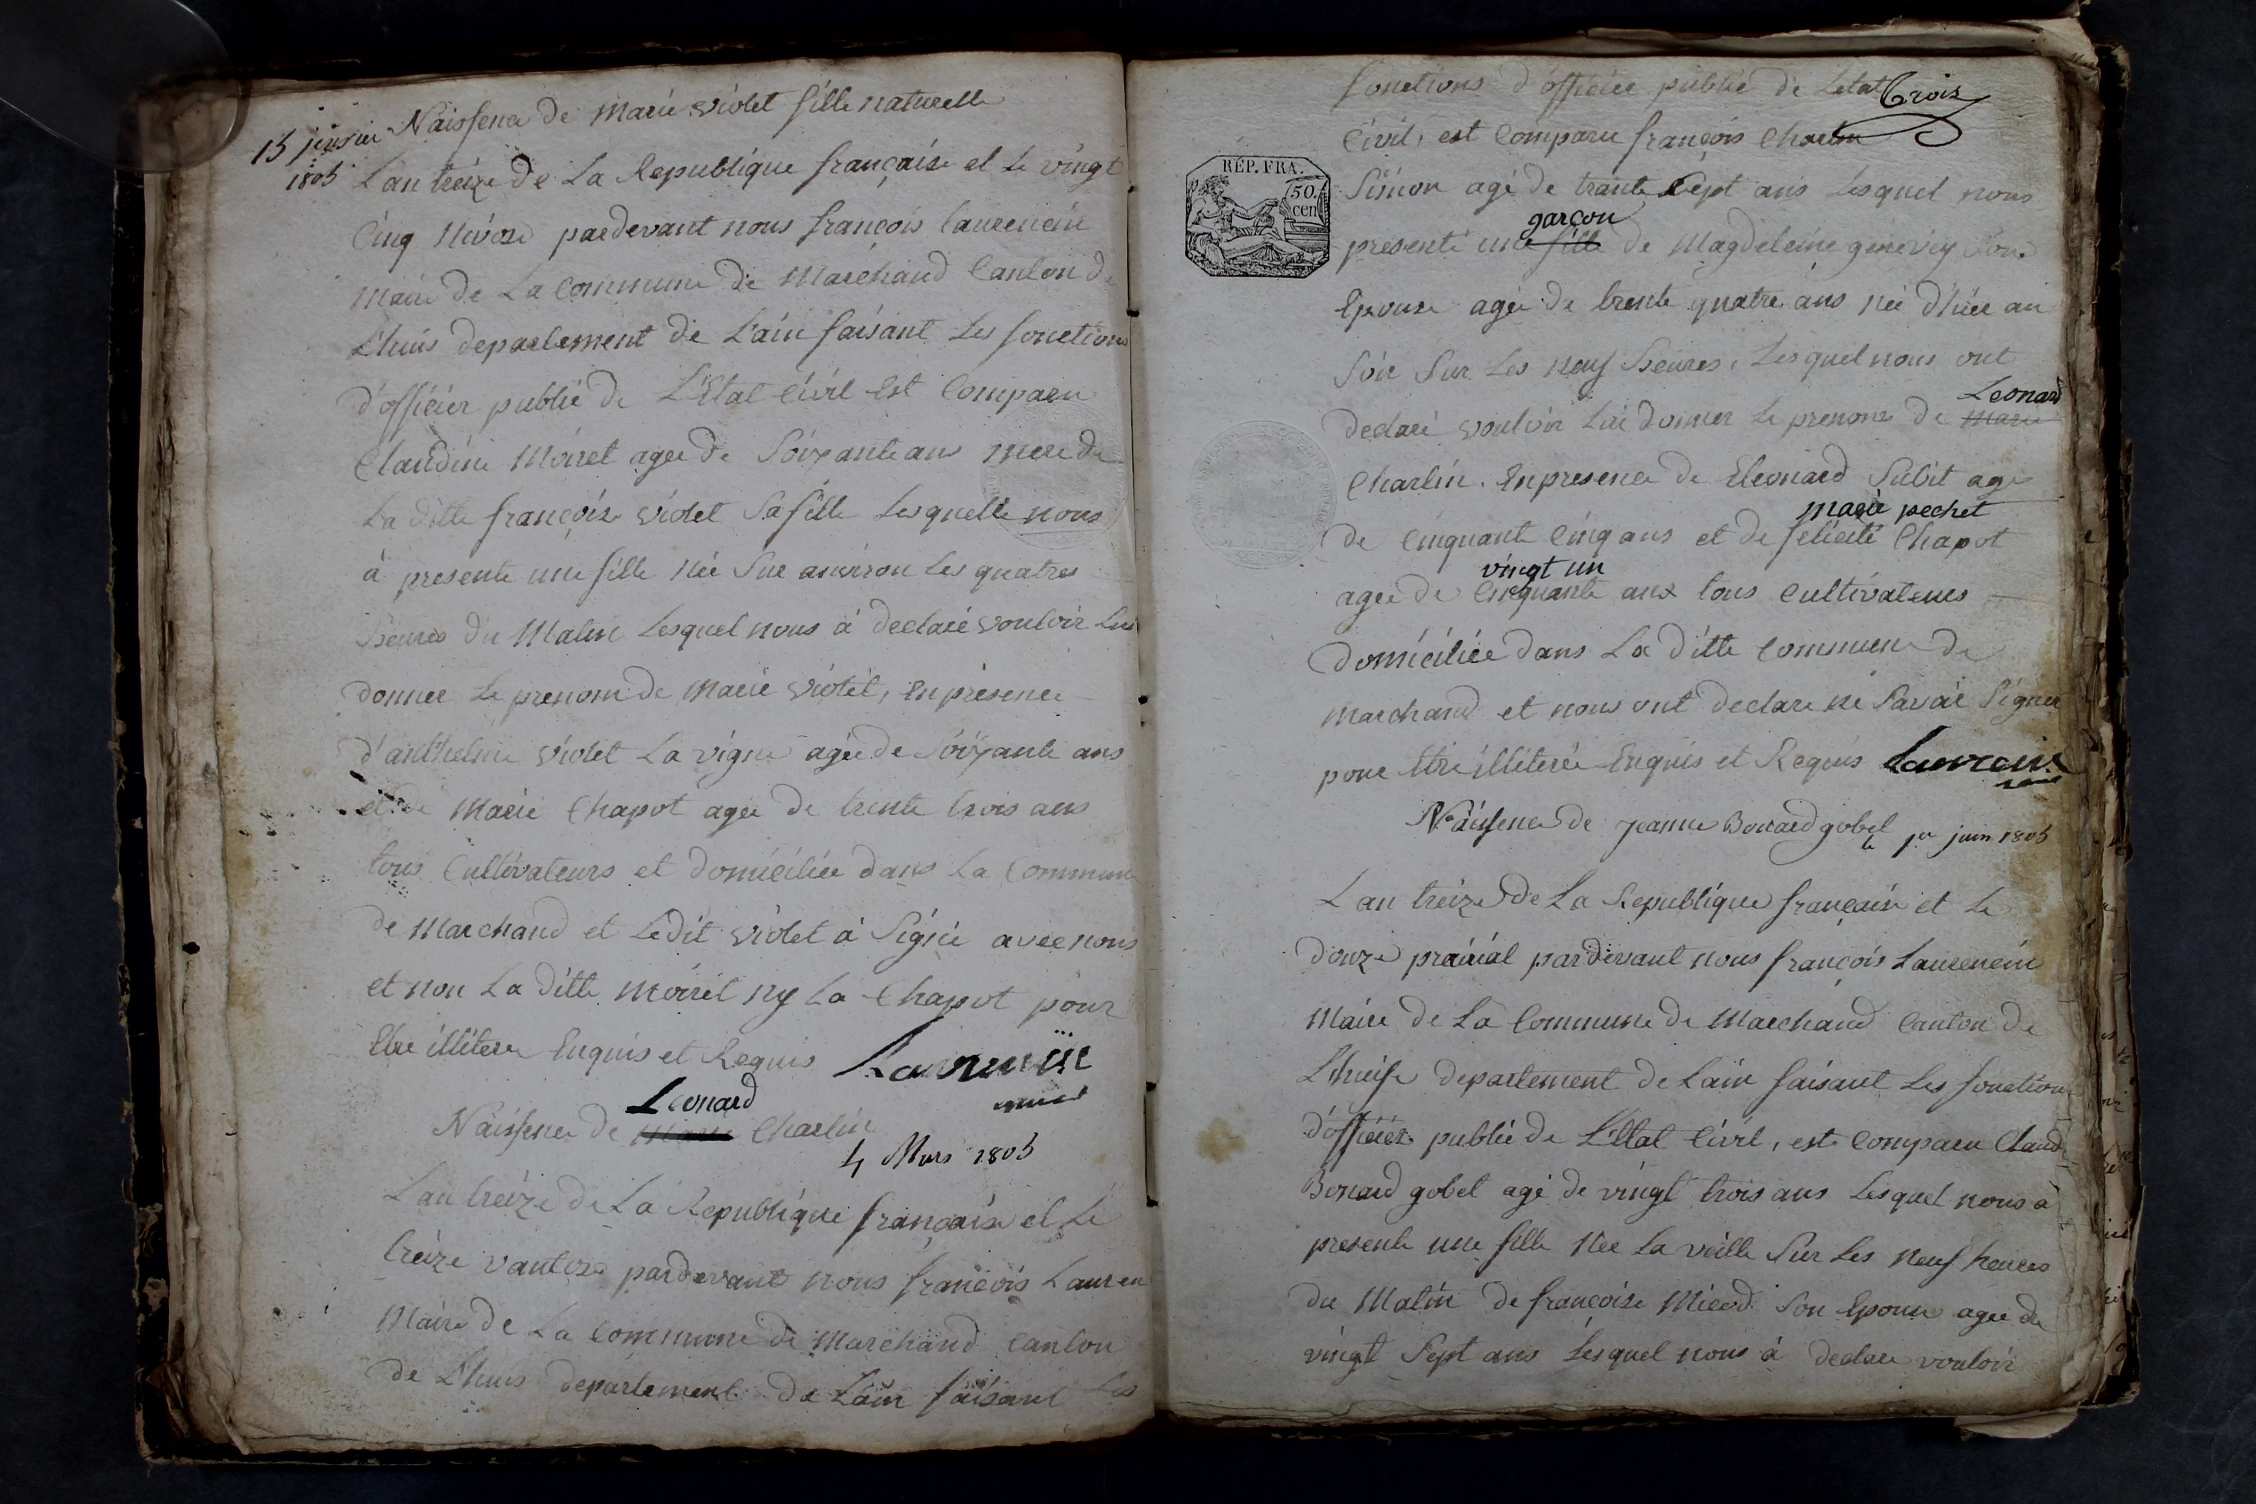 Naissence de Marie Violet fille naturelle
15 janvier
1805
L'an treize de La Republique française et le vingt
Cinq Nivose pardevant nous françois laurencin
Maire de La Commune de Marchand Canton de
L'huis departement de L'ain faisant Les fonctions
d'officier public de L'Etat Civil Est Comparu
Claudine Moiret agee de Soixante ans mere de
La ditte françoise Violet Sa fille Lesquelle nous
à presente une fille née Sur anviron Les quatres
heures du Matin Lesquel nous à declaré vouloir Lui
donner Le prenom de Marie Violet, En présence
d'anthelme Violet La vigne agée de Soixante ans
et de Marie Chapot agée de trente trois ans
tous Cultivateurs et domiciliée dans La Commune
de Marchand et Ledit Violet à Signé avec nous
et non La ditte Moiret ny La Chapot pour
Etre illiterée Enquis et Requis Laurencin
maire
Leonard
Naissence de Marie Charlin
4 Mars 1805
L'an treize de La Republique française et Le
treize vantose pardevant nous françois Lauren
Maire de La Commune de Marchand Canton
de L'huis departement de L'ain faisant Les
trois
fonctions d'officier public de L'etat
Civil, est Comparu françois Charlin
RÉP. FRA.
50.
cen
Simon agé de trante Sept ans Lesquel nous
garçon
presenté une fille de Magdeleine genevey Son
Epouse agée de trente quatre ans née d'hier au
Soir Sur Les neuf heures, Lesquel nous ont
Leonard
declaré vouloir Lui donner Le prenom de Marie
Charlin. En presence de Eleonard Subit agé
marie pechet
de Cinquante Cinq ans et de felicité Chapot
vingt un
agée de Cinquante ans tous Cultivateurs
domiciliée dans La ditte Commune de
Marchand et nous ont declaré ne Savoir Signer
pour Etre illiterée Enquis et Requis Laurencin
Naissence de Jeanne Bonard gobel
le 1er juin 1805
L'an treize de La Republique française et Le
douze prairial pardevant nous françois Laurencin
Maire de La Commune de Marchand Canton de
L'huis departement de L'ain faisant Les fonctions
d'officier public de L'Etat Civil, est Comparu Claude
Bonard gobel agé de vingt trois ans Lesquel nous a
presenté une fille Née La veille Sur Les Neuf heures
du Matin de françoise Micod Son Epouse agée de
vingt Sept ans Lesquel nous à declaré vouloir